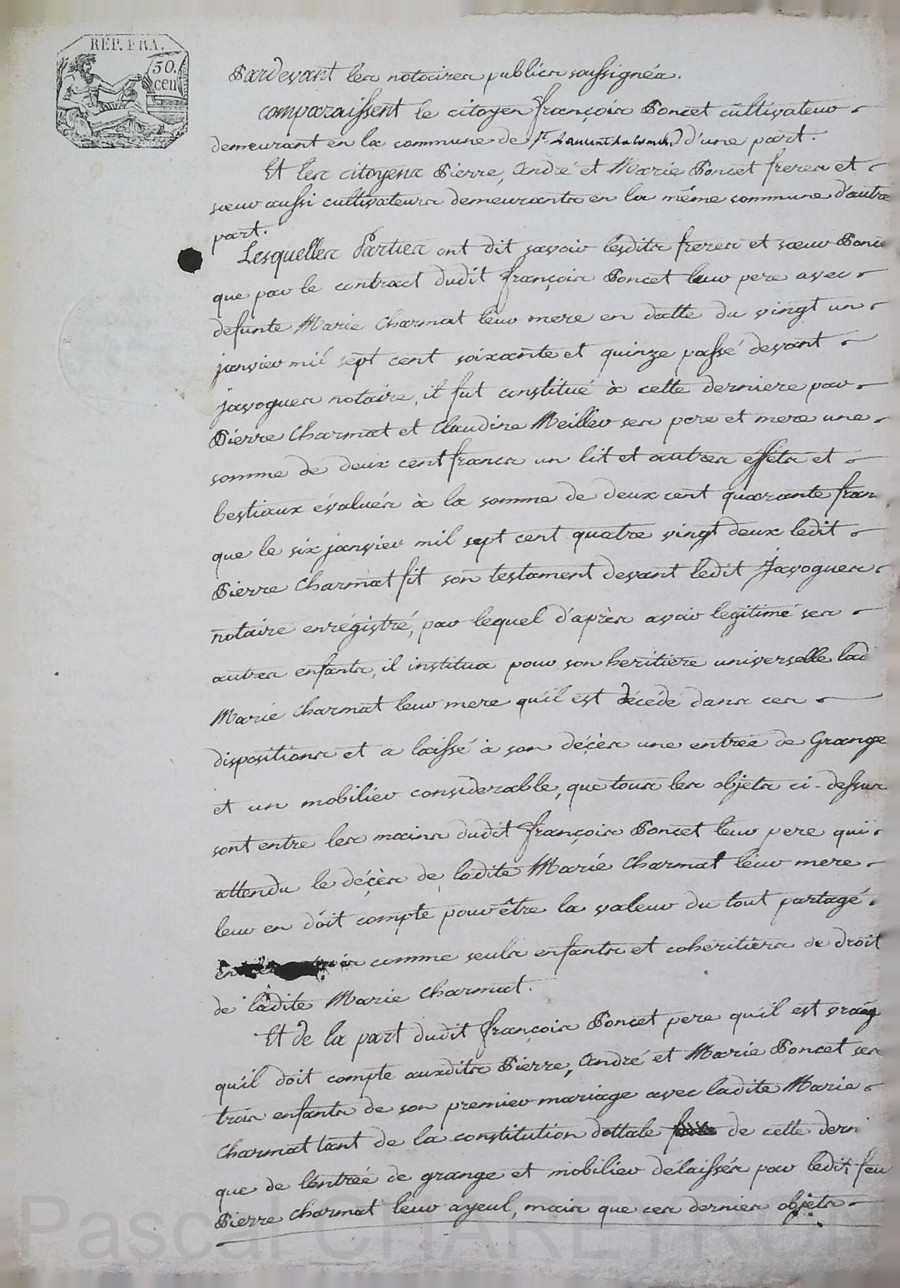 REP. FRA.
50.
cen
Pardevant les notaires publics soussignés.
Comparaissent le citoyen françois Poncet cultivateur
demeurant en la commune de d'une part.
Et les citoyens Pierre, André et Marie Poncet freres et
sœur aussi cultivateurs demeurants en la même commune d'autre
part.
Lesquelles Parties ont dit savoir lesdits freres et sœur Ponce
que par le contract dudit françois Poncet leur pere avec
defunte Marie Charmat leur mere en datte du vingt un
janvier mil sept cent soixante et quinze passé devant
javogues notaire, il fut constitué à cette derniere par
Pierre Charmat et Claudine Meiller ses pere et mere une
somme de deux cent francs un lit et autres effets et
bestiaux évalués à la somme de deux cent quarante fran
que le six janvier mil sept cent quatre vingt deux ledit
Pierre Charmat fit son testament devant ledit Javogues
notaire enrégistré, par lequel d'après avoir legitimé ses
autres enfants, il institua pour son heritiere universelle lad
Marie Charmat leur mere qu'il est décedé dans ces
dispositions et a laissé à son déçès une entrée de Grange
et un mobilier considerable, que tous les objets ci-dessus
sont entre les mains dudit françois Poncet leur pere qui
attendu le déçès de ladite Marie Charmat leur mere
leur en doit compte pour être la valeur du tout partagé
comme seuls enfants et cohéritiers de droit
de ladite Marie Charmat.
Et de la part dudit françois Poncet pere qu'il est vray
qu'il doit compte auxdits Pierre, André et Marie Poncet ses
trois enfants de son premier mariage avec ladite Marie
Charmat tant de la constitution dottale de cette derni
que de lentrée de grange et mobilier délaissés par ledit feu
Pierre Charmat leur ayeul, mais que ces dernier objets
Pascal CHAREYRON